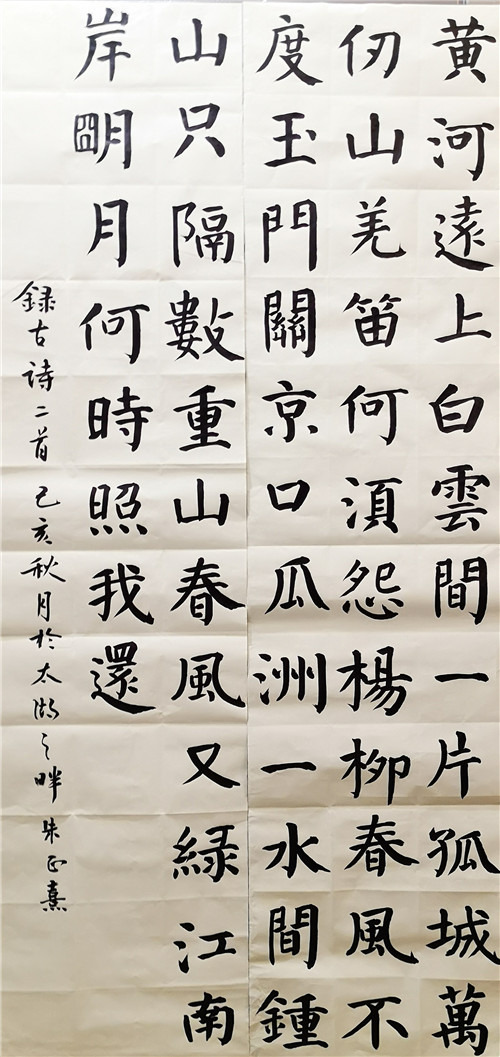 黄河遠上白雲間一片孤城萬
仞山羌笛何須怨楊柳春風不
度玉門關京口瓜洲一水間鍾
山只隔數重山春風又緑江南
岸朙月何時照我還
録古詩二首 己亥秋月於太湖之畔 朱正熹